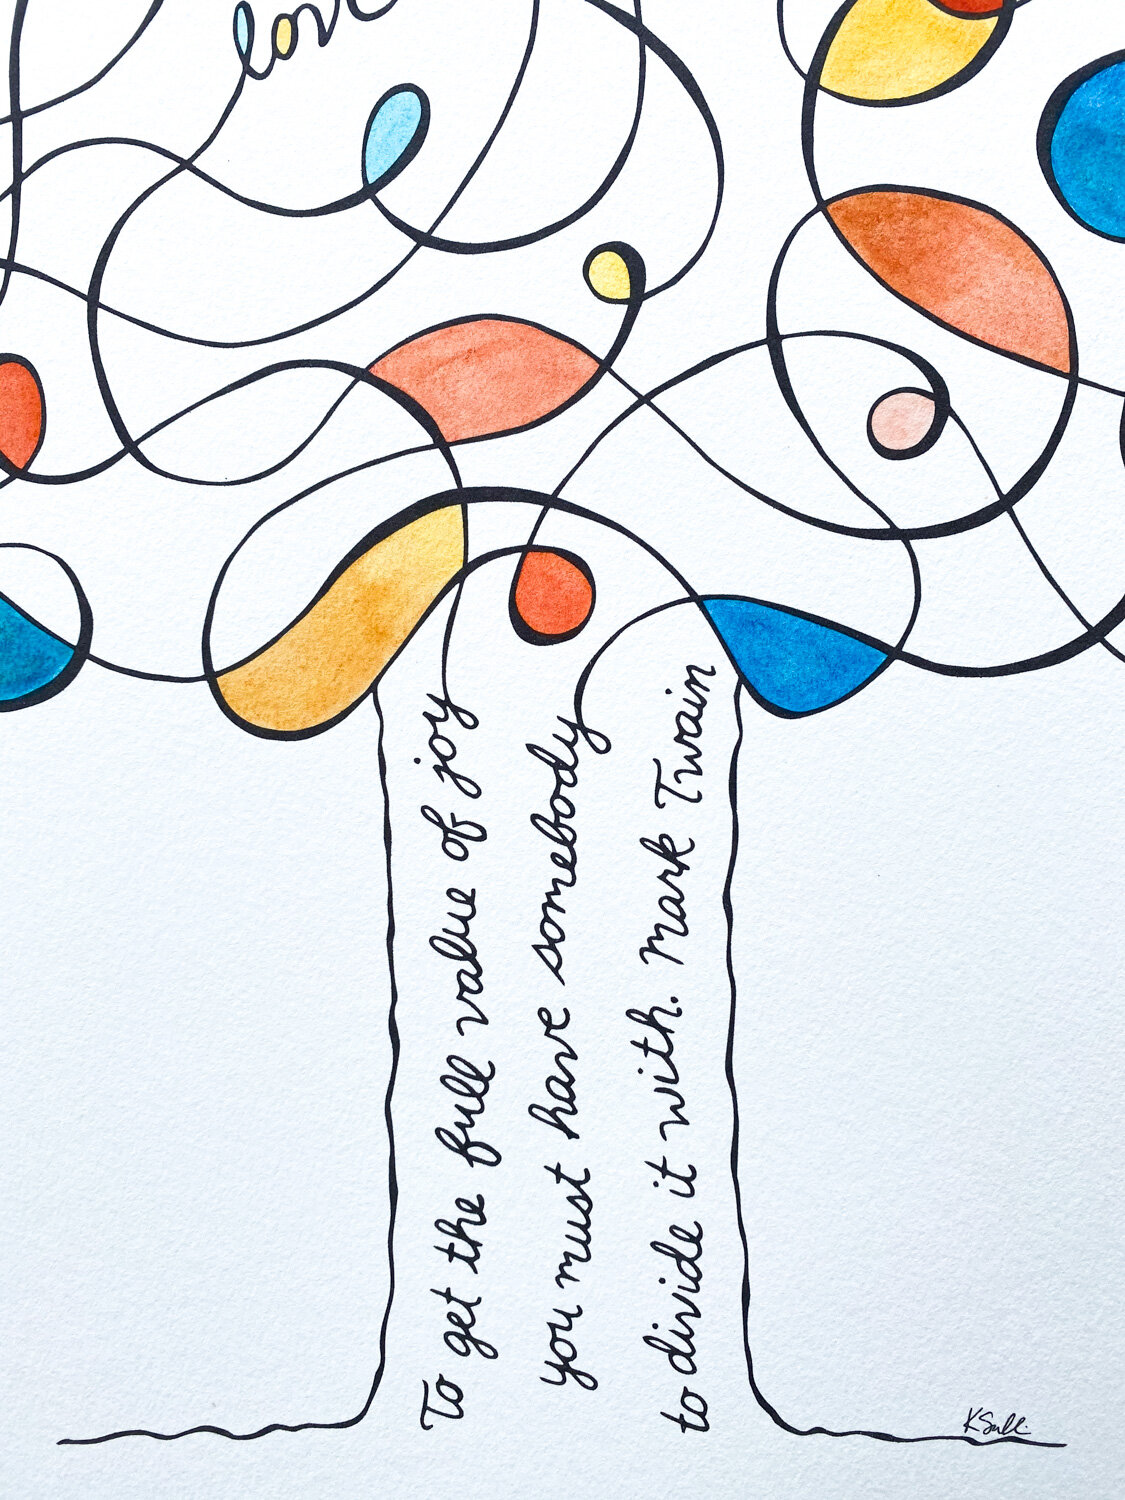 love
To get the full value of joy
you must have somebody
to divide it with. Mark Twain